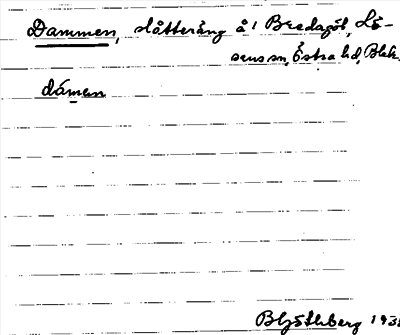 Dammen, slåtteräng å 1 Bredagöl, Lö-
sens sn, Östra hd, Blek.
dámen
B Hjöthberg 193